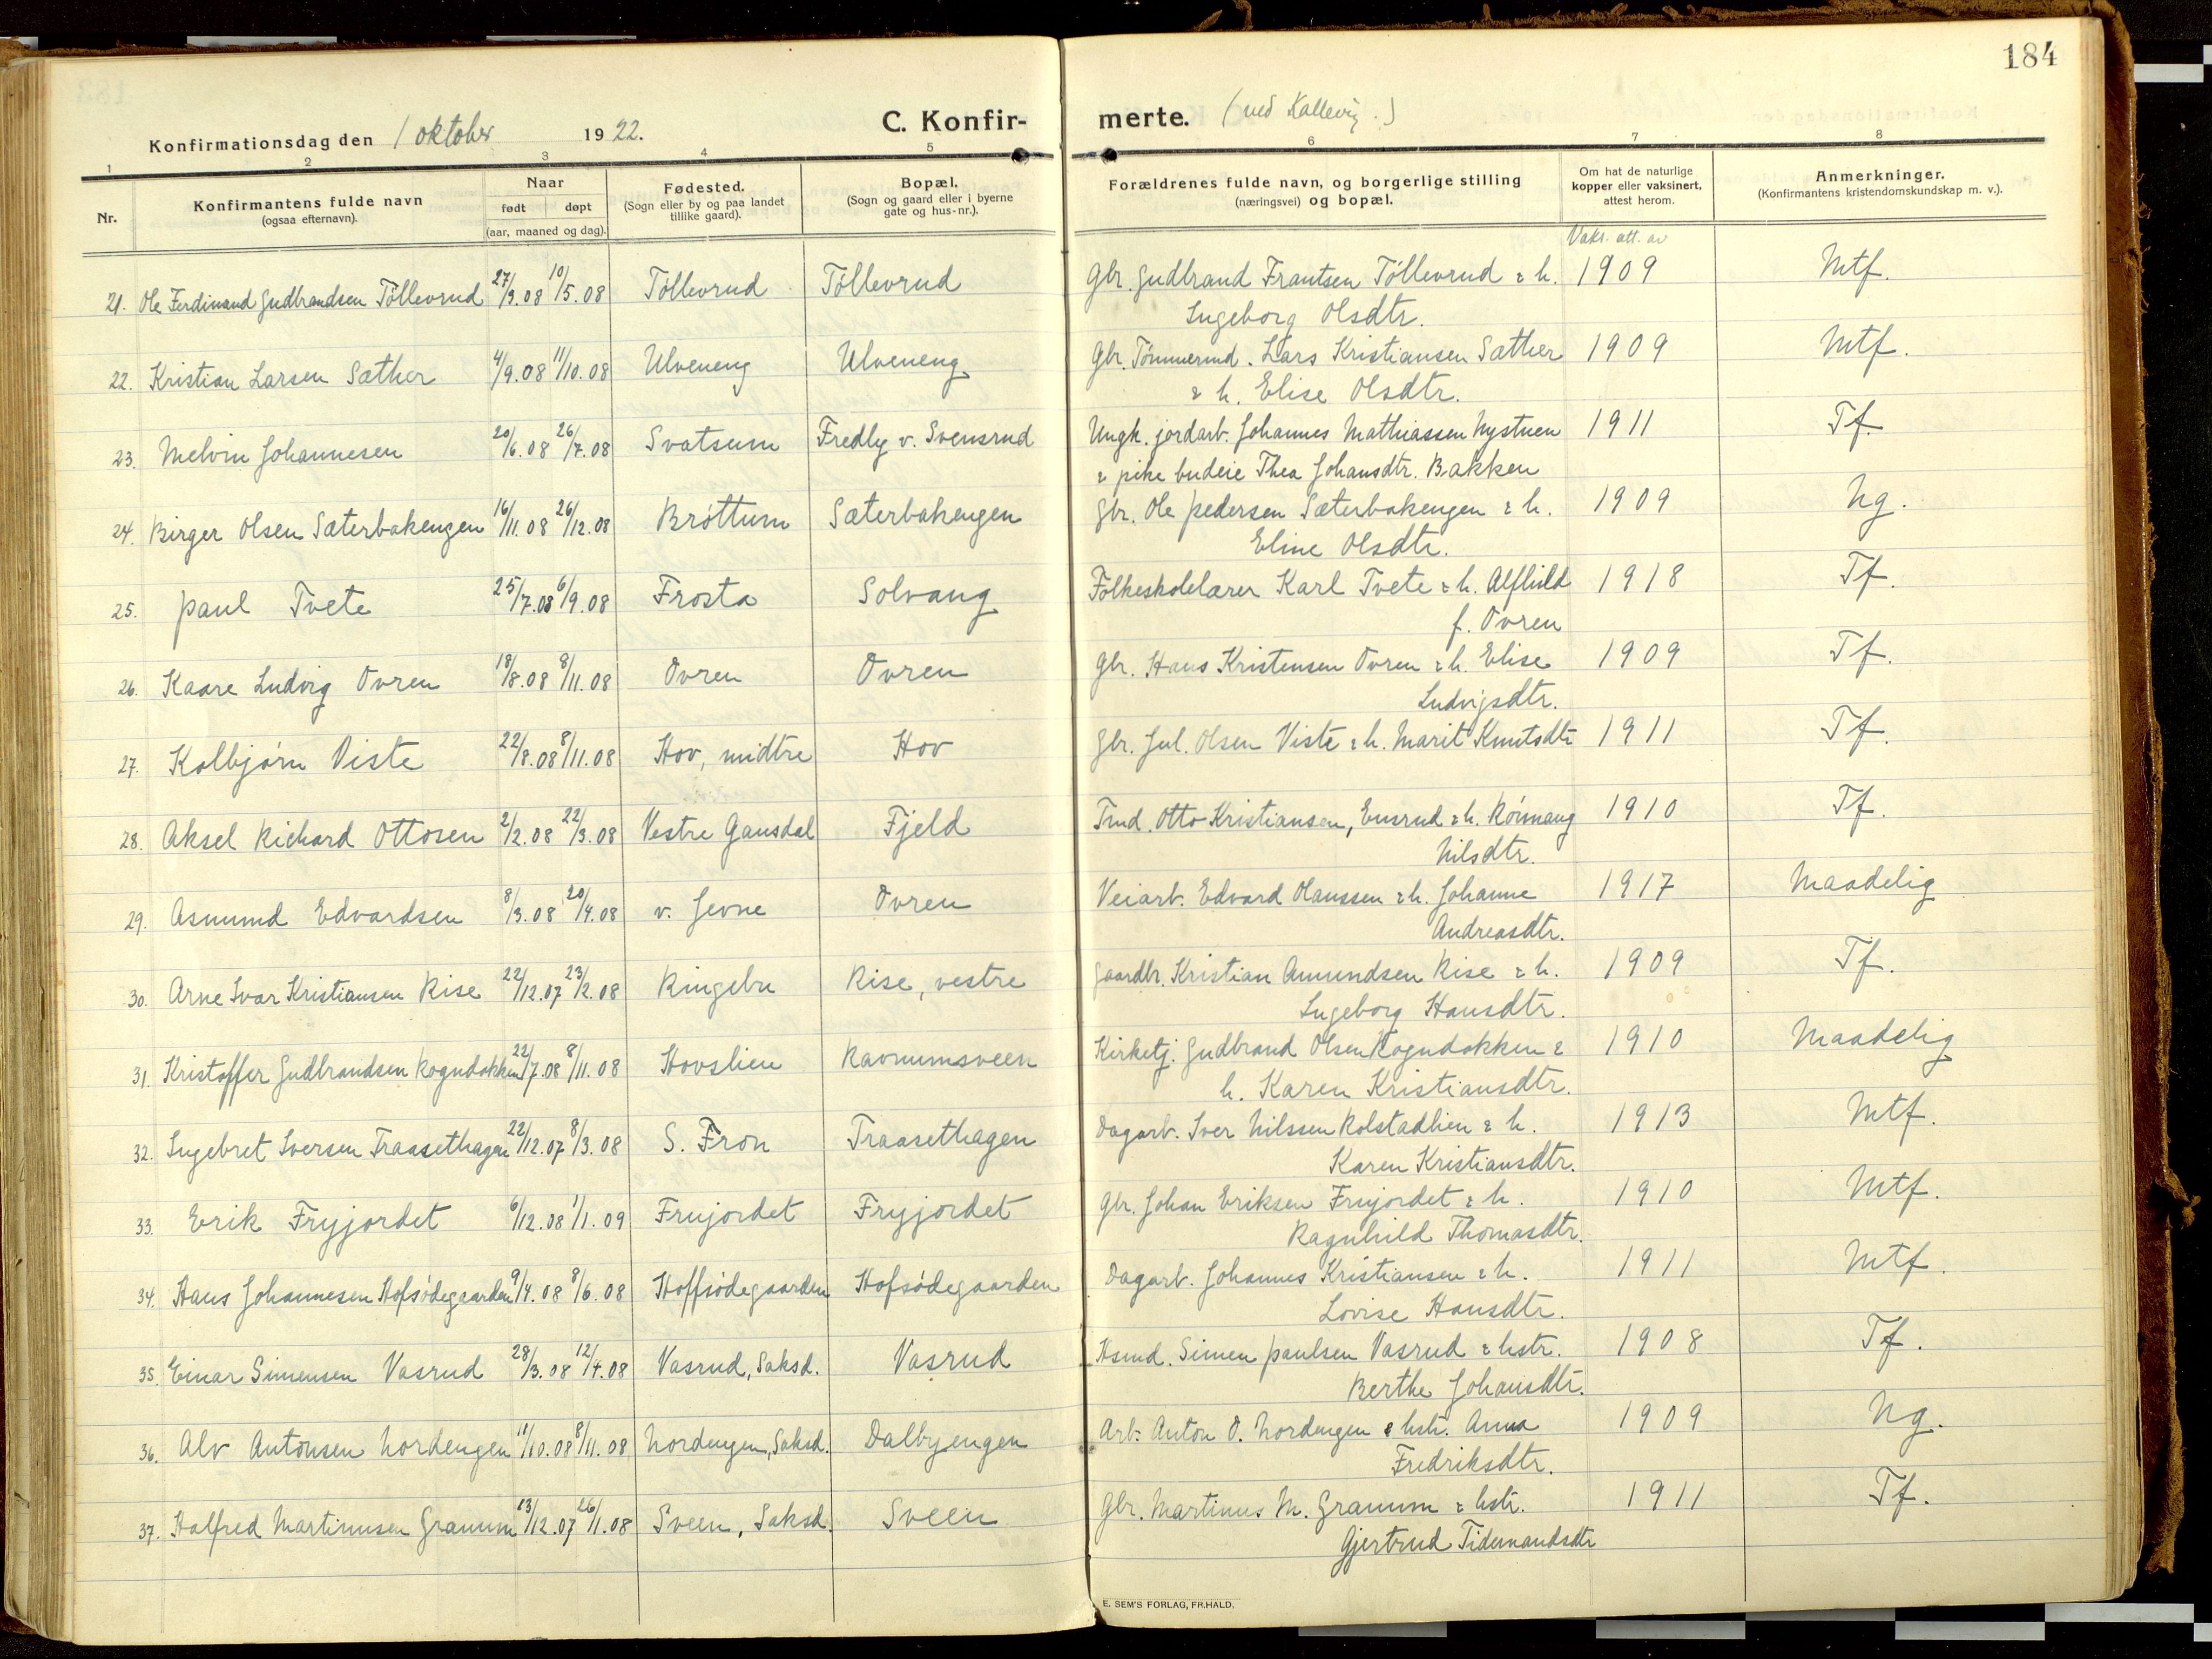 184
Konfirmationsdag den 1 oktober 1922. C. Konfir-merte. (ved Kallevig.)
1 2 3 4 5 6 7 8
Nr. Konfirmantens fulde navn (ogsaa efternavn). Naar født døpt (aar, maaned og dag). Fødested. (Sogn eller by og paa landet tillike gaard). Bopæl. (Sogn og gaard eller i byerne gate og hus-nr.). Forældrenes fulde navn, og borgerlige stilling (næringsvei) og bopæl. Om hat de naturlige kopper eller vaksinert, attest herom. Anmerkninger. (Konfirmantens kristendomskundskap m. v.).
Vaks. att. av
21. Ole Ferdinand Gudbrandsen Töllevrud 27/3.08 10/5.08 Töllevrud Töllevrud Gbr. Gudbrand Frantsen Töllevrud & h. 1909 Mtf.
Ingeborg Olsdtr.
22. Kristian Larsen Sæther 4/9.08 11/10.08 Ulveneng Ulveneng Gbr. Tömmermd. Lars Kristiansen Sæther 1909 Mtf.
& h. Elise Olsdtr.
23. Melvin Johannesen 20/6.08 26/7.08 Svatsum Fredly v. Svensrud Ungk. jordarb. Johannes Mathiassen Nystuen 1911 Tf.
& pike budeie Thea Johansdtr. Bakken
24. Birger Olsen Sæterbakengen 16/11.08 26/12.08 Bröttum Sæterbakengen Gbr. Ole Pedersen Sæterbakengen & h. 1909 Ng.
Eline Olsdtr.
25. Paul Tvete 25/7.08 6/9.08 Frosta Solvang Folkeskolelærer Karl Tvete & h. Alfhild 1918 Tf.
f. Ovren
26. Kaare Ludvig Ovren 18/8.08 8/11.08 Ovren Ovren Gbr. Hans Kristensen Ovren & h. Elise 1909 Tf.
Ludvigsdtr.
27. Kolbjörn Viste 22/8.08 8/11.08 Hov, midtre Hov Gbr. Jul. Olsen Viste & h. Marit Knutsdtr 1911 Tf.
28. Aksel Richard Ottosen 2/2.08 22/3.08 Vestre Gausdal Fjeld Tmd. Otto Kristiansen, Ensrud & h. Rönnaug 1910 Tf.
Nilsdtr.
29. Asmund Edvardsen 8/3.08 20/4.08 v. Jevne Ovren Veiarb. Edvard Hanssen & h. Johanne 1917 Maadelig
Andreasdtr.
30. Arne Ivar Kristiansen Rise 22/12.07 23/2.08 Ringebu Rise, vestre Gaardbr. Kristian Amundsen Rise & h. 1909 Tf.
Ingeborg Hansdtr.
31. Kristoffer Gudbrandsen Rogndokken 22/7.08 8/11.08 Hovslien Ravnumsveen Kirketj. Gudbrand Olsen Rogndokken & 1910 Maadelig
h. Karen Kristiansdtr.
32. Ingebret Iversen Traasethagen 22/12.07 8/3.08 S. Fron Traasethagen Dagarb. Iver Nilssen Rolstadlien & h. 1913 Mtf.
Karen Kristiansdtr.
33. Erik Fryjordet 6/12.08 1/1.09 Frujordet Fryjordet Gbr. Johan Eriksen Frujordet & h. 1910 Mtf.
Ragnhild Thomasdtr.
34. Hans Johannesen Hofsödegaarden 9/4.08 8/6.08 Hoffsödegaarden Hofsödegaarden Dagarb. Johannes Kristiansen & h. 1911 Mtf.
Lovise Hansdtr.
35. Einar Simensen Vasrud 28/3.08 12/4.08 Vasrud, Saksd. Vasrud Hsmd. Simen Paulsen Vasrud & hstr. 1908 Tf.
Berthe Johansdtr.
36. Alv Antonsen Nordengen 11/10.08 8/11.08 Nordengen, Saksd. Dalbyengen Arb. Anton O. Nordengen & hstr. Anna 1909 Ng.
Fredriksdtr.
37. Halfred Martinusen Granum 13/12.07 26/1.08 Sveen, Saksd. Sveen Gbr. Martinus M. Granum & hstr. 1911 Tf.
Gjertrud Tidemandsdtr
E. SEM'S FORLAG, FR.HALD.